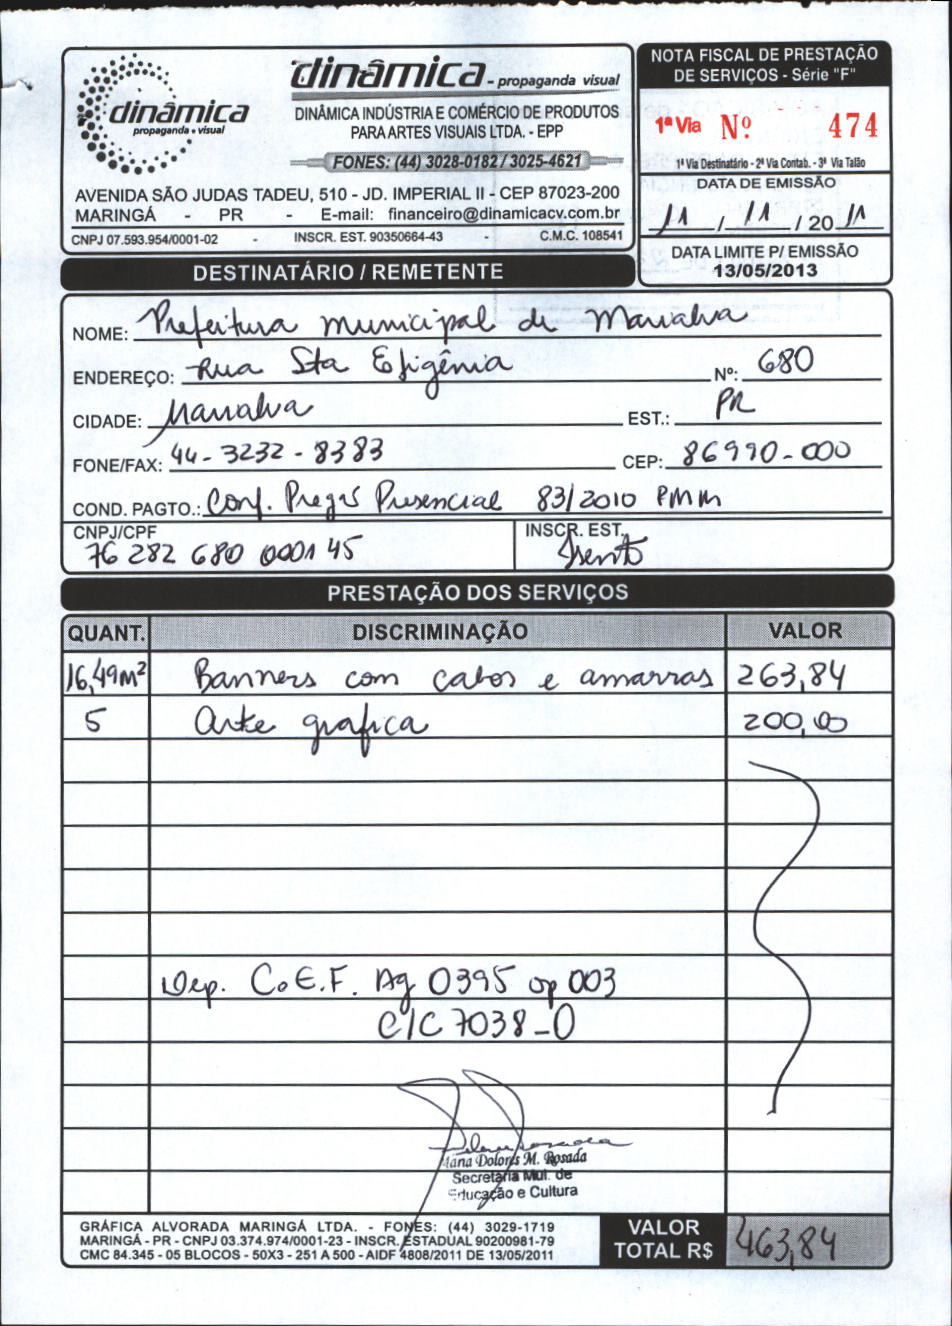 dinâmica
propaganda • visual
dinâmica - propaganda visual
DINÂMICA INDÚSTRIA E COMÉRCIO DE PRODUTOS
PARA ARTES VISUAIS LTDA. - EPP
FONES: (44) 3028-0182 / 3025-4621
AVENIDA SÃO JUDAS TADEU, 510 - JD. IMPERIAL II - CEP 87023-200
MARINGÁ - PR - E-mail: financeiro@dinamicacv.com.br
CNPJ 07.593.954/0001-02 - INSCR. EST. 90350664-43 - C.M.C. 108541
NOTA FISCAL DE PRESTAÇÃO
DE SERVIÇOS - Série "F"
1ª Via Nº 474
1ª Via Destinatário - 2ª Via Contab. - 3ª Via Talão
DATA DE EMISSÃO
11 / 11 / 20 11
DATA LIMITE P/ EMISSÃO
13/05/2013
DESTINATÁRIO / REMETENTE
NOME: Prefeitura municipal de Marialva
ENDEREÇO: Rua Sta Efigênia Nº: 680
CIDADE: Marialva EST.: PR
FONE/FAX: 44-3232-8383 CEP: 86990-000
COND. PAGTO.: Conf. Pregão Presencial 83/2010 PMM
CNPJ/CPF INSCR. EST.
76 282 680 0001 45 Isento
PRESTAÇÃO DOS SERVIÇOS
QUANT. DISCRIMINAÇÃO VALOR
16,49m² Banners com cabos e amarras 263,84
5 Arte grafica 200,00
Dep. C.E.F. Ag 0395 op 003
C/C 7038-0
Maria Dolores M. Rosada
Secretária Mul. de
Educação e Cultura
GRÁFICA ALVORADA MARINGÁ LTDA. - FONES: (44) 3029-1719
MARINGÁ - PR - CNPJ 03.374.974/0001-23 - INSCR. ESTADUAL 90200981-79
CMC 84.345 - 05 BLOCOS - 50X3 - 251 A 500 - AIDF 4808/2011 DE 13/05/2011
VALOR
TOTAL R$ 463,84